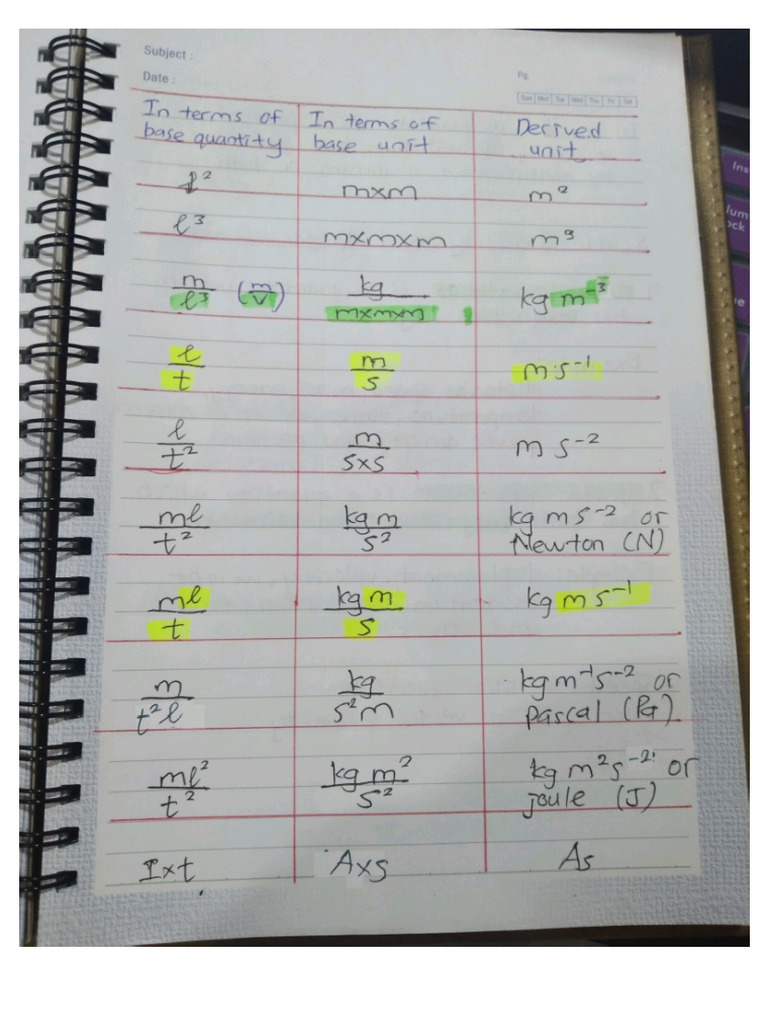 Subject :
Pg.
Date :
Sun Mon Tue Wed Thu Fri Sat
In terms of base quantity | In terms of base unit | Derived unit
ℓ² | m×m | m²
ℓ³ | m×m×m | m³
m/ℓ³ (m/v) | kg/m×m×m | kg m⁻³
ℓ/t | m/s | m s⁻¹
ℓ/t² | m/s×s | m s⁻²
mℓ/t² | kg m/s² | kg m s⁻² or Newton (N)
mℓ/t | kg m/s | kg m s⁻¹
m/t²ℓ | kg/s²m | kg m⁻¹s⁻² or pascal (Pa)
mℓ²/t² | kg m²/s² | kg m²s⁻² or joule (J)
I×t | A×s | As
Ins